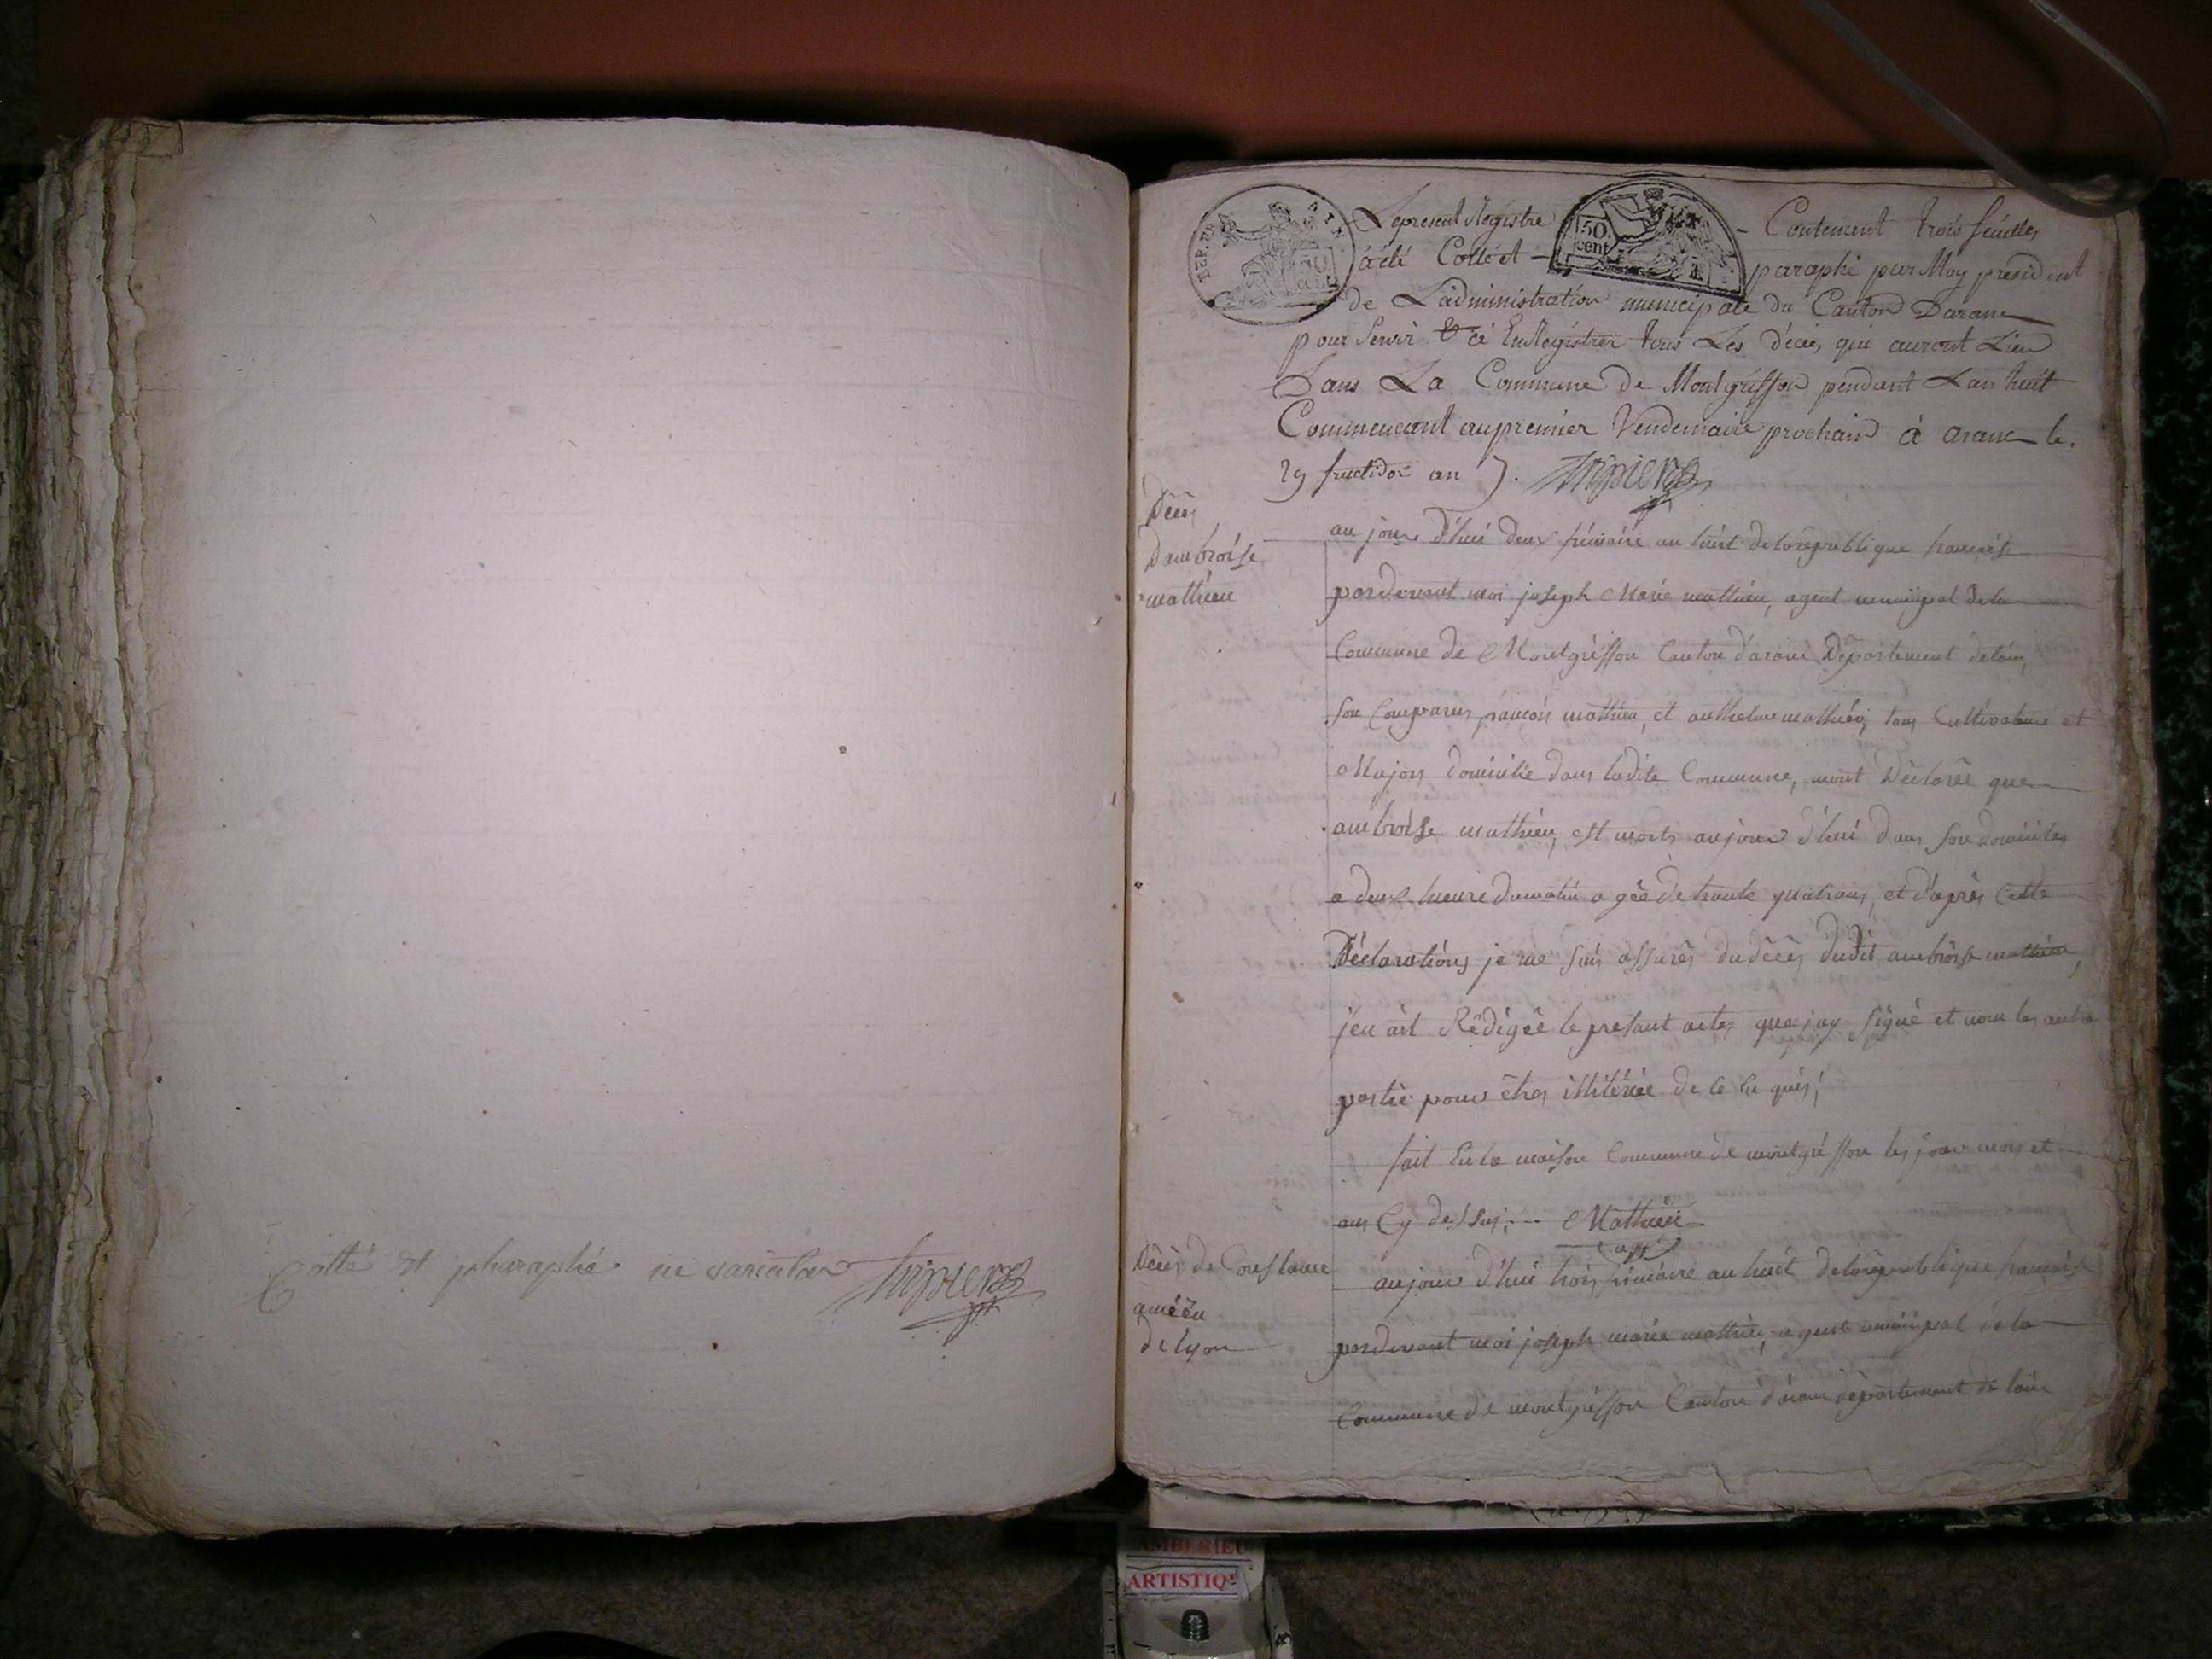 Cotté et pharaphé ne varietur Tripier
REP. FRA
50
cent
Le present Registre
50
cent
Contenant trois feuilles
à été Cotté et
paraphé par Moy president
de L'administration municipale du Canton Daranc
pour servir & ci EnRegistrer tous Les décès qui auront Lieu
Dans La Commune de Montgriffon pendant Lan huit
Commencant au premier Vendemiaire prochain à aranc le
29 fructidor an 7. Tripier
Décès
Dambroise
mathieu
au jour d'hui deux frimaire an huit de la republique francaise
pardevant moi joseph Marie mathieu, agent municipal de la
Commune de Montgriffon Canton d'aranc Département de lain
son Comparus francois mathieu, et anthelme mathieu, tous Cultivateur et
Majors domicilié dans ladite Commune, mont Déclaréé que
ambroise mathieu, est morts aujour d'hui dans son domiciles
a deux heure du matin agéé de trante quatrans, et d'après Cette
Déclarations je me suis assurés du décès dudit ambroise mathieu,
j'en ait Rédigéé le presant actes que jay signé et non les autre
partie pour êtres illitéréé de ce en quis;
fait En la maison Commune de montgriffon les jour mois et
ans Cy dessus; Mathieu
agt
Décès de Constance
améeu
de lyon
aujour d'hui trois frimaire an huit de la republique francaise
pardevant moi joseph marie mathieu, agent municipal de la
Commune de montgriffon Canton d'aranc département de lain
AMBERIEU
ARTISTIQ